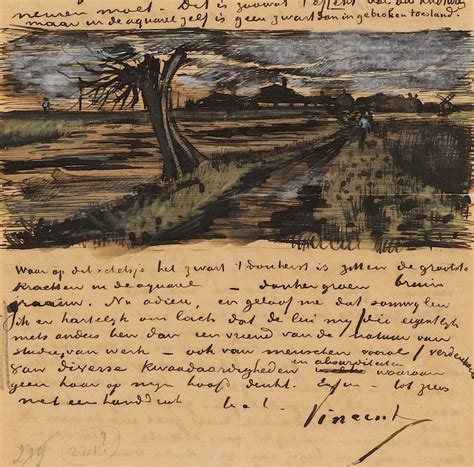 nemen moet. Dit is zoowat t effekt van
maar in de aquarel zelf is geen zwart dan in gebroken toestand.
Waar op dit schetsje het zwart t donkerst is zitten de grootste
krachten in de aquarel – donkergroen bruin
graauw. Nu adieu, en geloof me dat somwijlen
ik er hartelijk om lach dat de lui mij die eigentlijk
niets anders ben dan een vriend van de natuur van
studie, van werk – ook van menschen vooral verdenken
van diverse kwaadaardigheden en absurditeiten waaraan
geen haar op mijn hoofd denkt. Enfin – tot ziens
met een handdruk t. à t.
Vincent